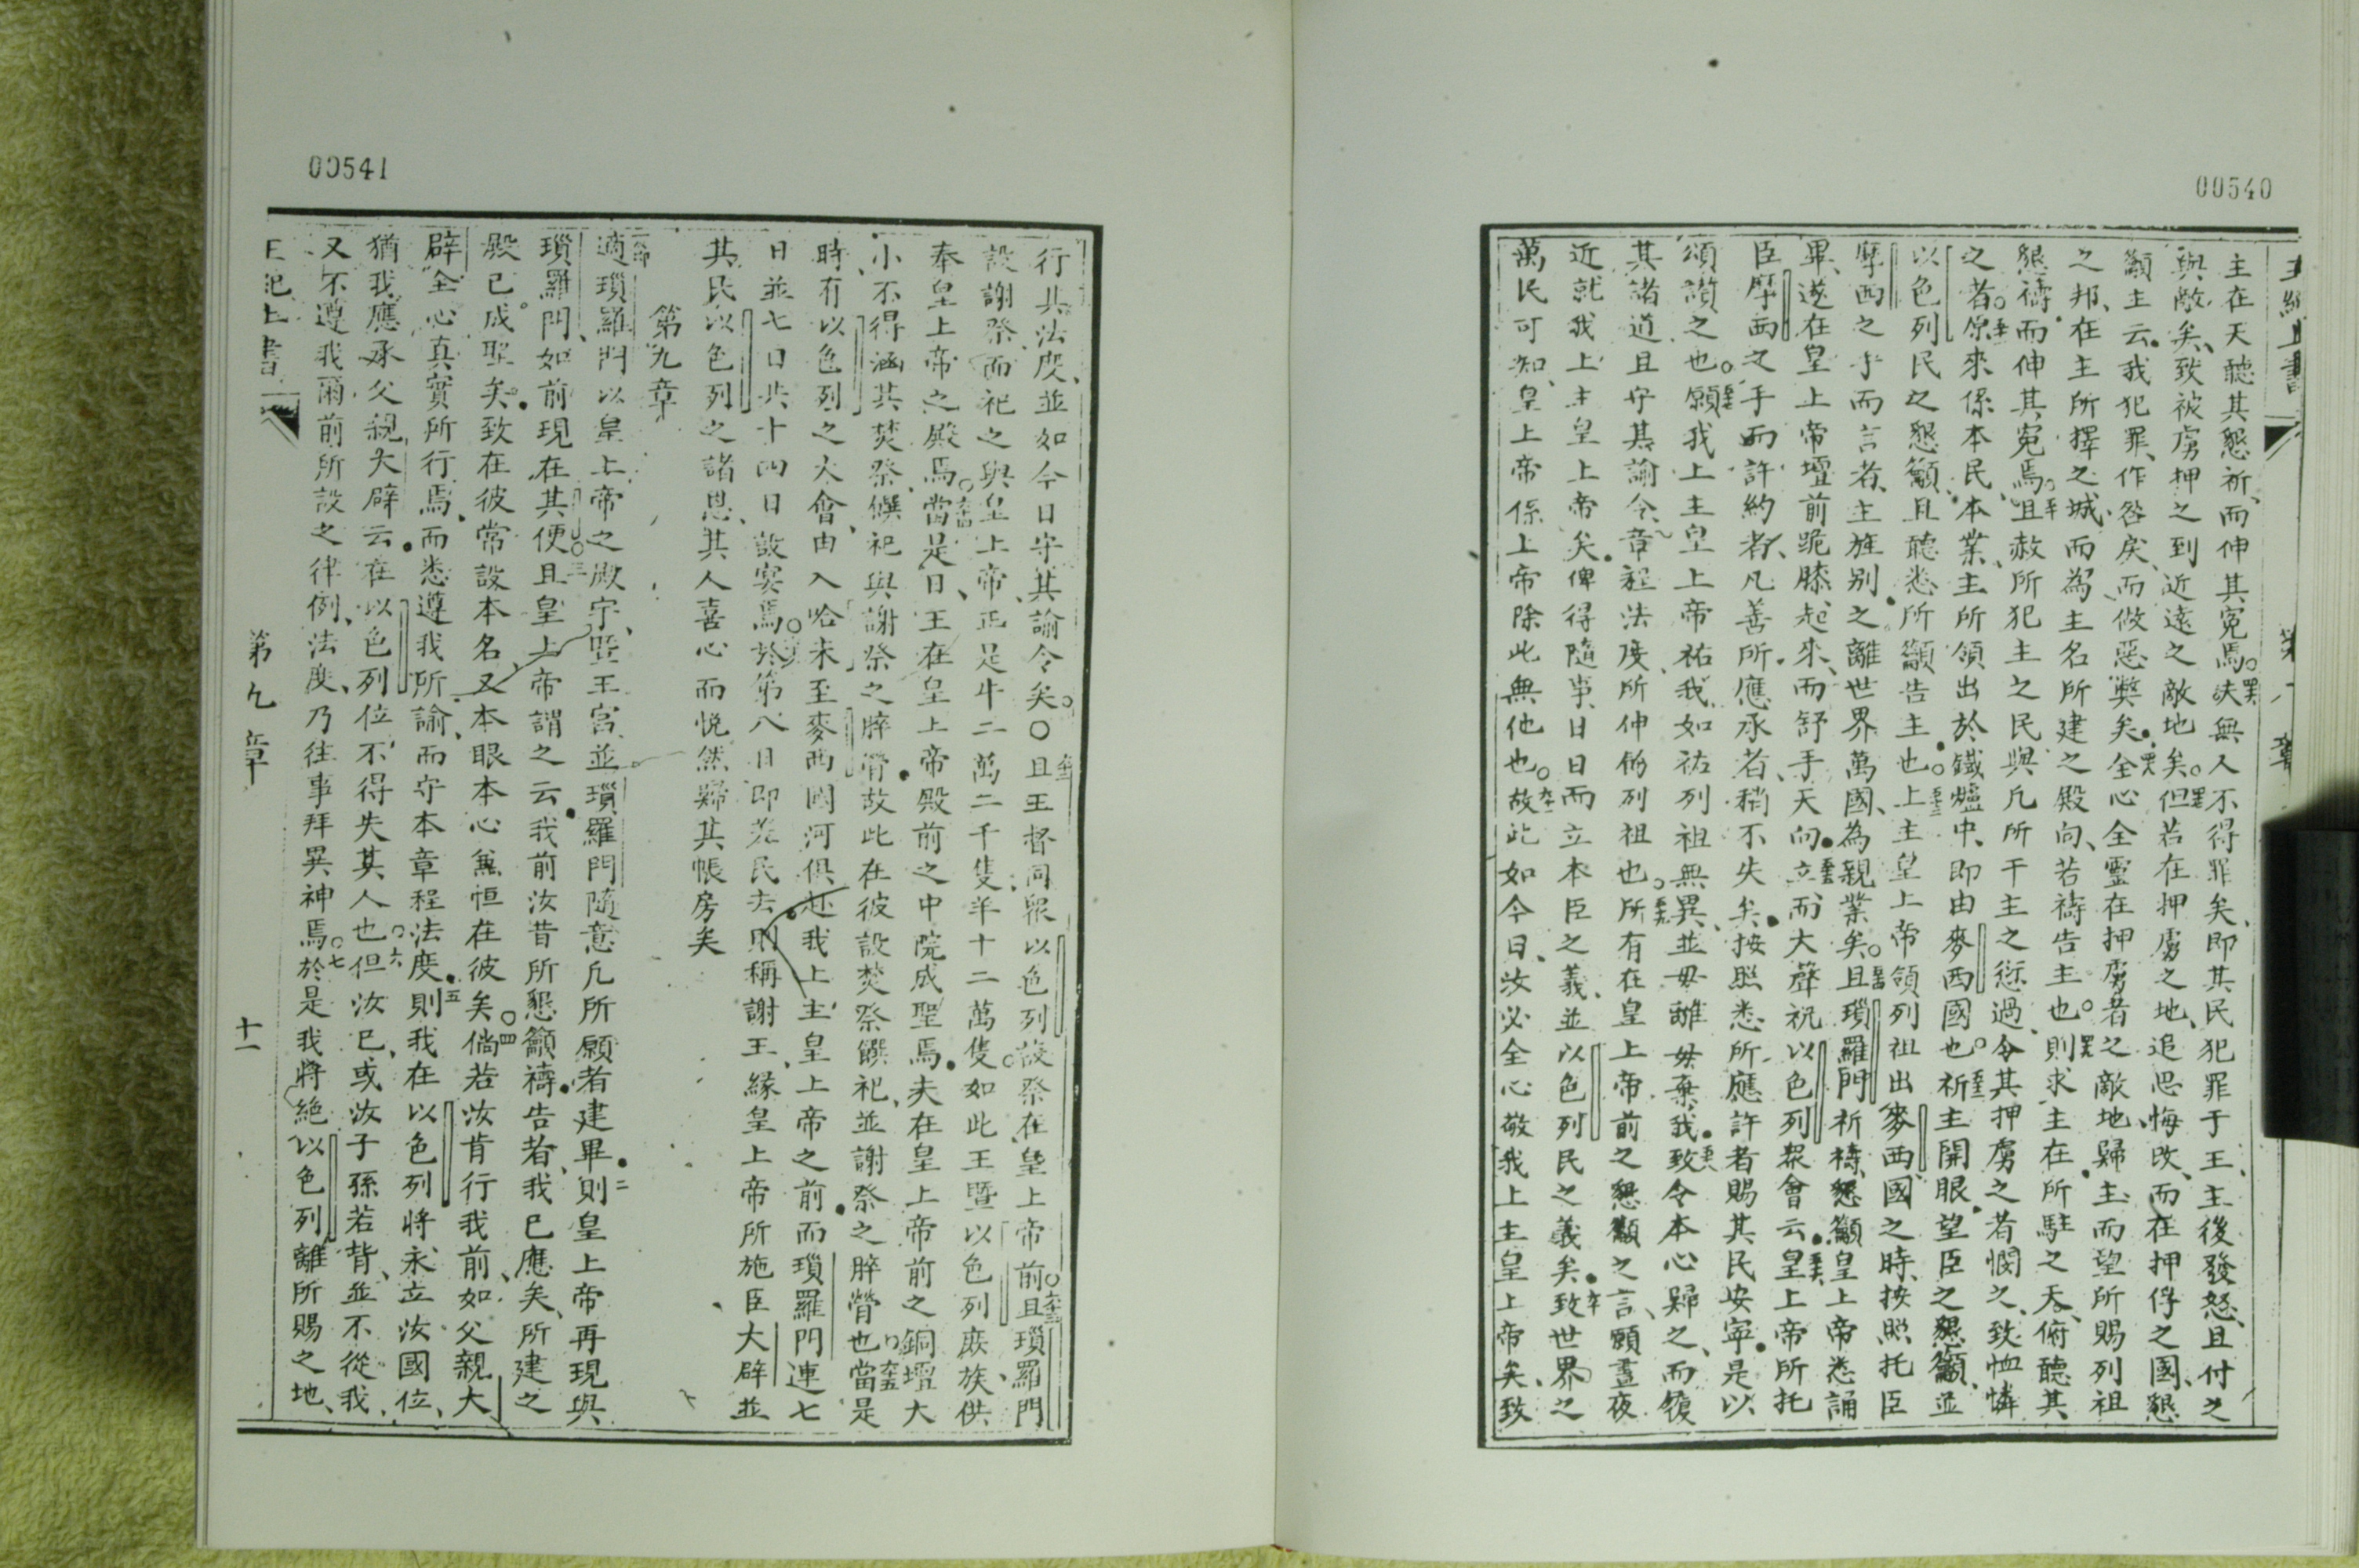 00540
主在天聽其懇祈、而伸其冤焉。夫無人不得罪矣、即其民犯罪于王、主後發怒、且付之
與敵矣、致被虜押之到近遠之敵地矣。但若在押虜之地、追思悔改、而在押俘之國、懇
籲主云、我犯罪、作咎戾、而做惡弊矣。全心全靈在押虜者之敵地歸主、而望所賜列祖
之邦、在主所擇之城、而為主名所建之殿向、若禱告主也。則求主在所駐之天、俯聽其
懇禱、而伸其冤焉。且赦所犯主之民、與凡所干主之愆過、令其押虜之者憫之、致恤憐
之者。原來係本民、本業、主所領出於鐵爐中、即由麥西國也。祈主開眼、望臣之懇籲、並
以色列民之懇籲、且聽悉所籲告主也。上主皇上帝領列祖出麥西國之時、按照托臣
摩西之手而言者、主旌別之離世界萬國、為親業矣。且瑣羅門祈禱、懇籲皇上帝悉誦
畢、遂在皇上帝壇前跪膝起來、而舒手天向、立而大聲祝以色列眾會云、皇上帝所托
臣摩西之手而許約者、凡善所應承者、稍不失矣、按照悉所應許者、賜其民安寧、是以
頌讚之也。願我上主皇上帝祐我、如祐列祖無異、並毋離毋棄我、致令本心歸之、而履
其諸道、且守其諭令、章程法度、所伸飭列祖也。所有在皇上帝前之懇籲之言、願晝夜
近就我上主皇上帝矣。俾得隨事日日而立本臣之義、並以色列民之義矣。致世界之
萬民可知、皇上帝係上帝、除此無他也。故此如今日、汝必全心敬我上主皇上帝矣、致
00541
行其法度、並如今日守其諭令矣。○且王督同眾以色列設祭在皇上帝前。且瑣羅門
設謝祭、而祀之與皇上帝、正是牛二萬二千隻、羊十二萬隻。如此王暨以色列庶族供
奉皇上帝之殿焉。當是日、王在皇上帝殿前之中院成聖焉、夫在皇上帝前之銅壇大
小、不得涵其焚祭、饌祀、與謝祭之脺膋、故此在彼設焚祭饌祀、並謝祭之脺膋也。當是
時、有以色列之大會、由入哈末至麥西國河、俱赴我上主皇上帝之前、而瑣羅門連七
日並七日、共十四日設宴焉。於第八日即差民去、則稱謝王、緣皇上帝所施臣大辟並
其民以色列之諸恩、其人喜心而悅然歸其帳房矣
第九章
適瑣羅門以皇上帝之殿宇、暨王宮、並瑣羅門隨意凡所願者建畢、則皇上帝再現與
瑣羅門、如前現在其便。且皇上帝謂之云、我前汝昔所懇籲禱告者、我已應矣、所建之
殿已成聖矣。致在彼常設本名、又本眼本心無恒在彼矣。倘若汝肯行我前、如父親大
辟全心真實所行焉、而悉遵我所諭、而守本章程法度、則我在以色列將永立汝國位、
猶我應承父親大辟云、在以色列位不得失其人也。但汝已、或汝子孫若背、並不從我、
又不遵我爾前所設之律例、法度、乃往事拜異神焉。於是我將絕以色列離所賜之地、
第九章
十一